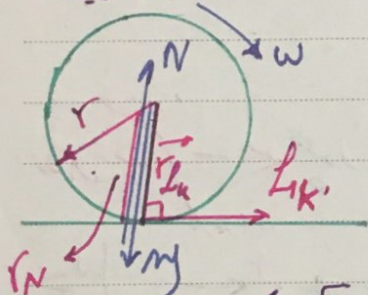 N
ω
r
r
fₖ
fₖ
r_N
mg